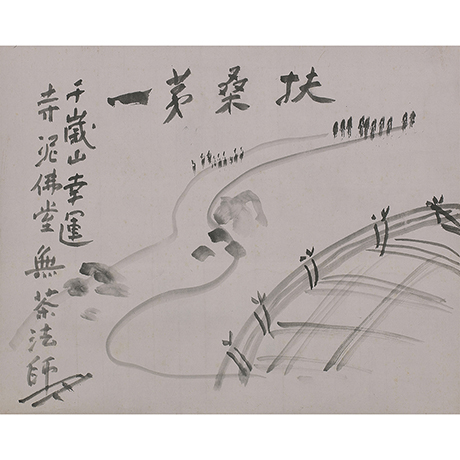 扶桑苐一
于嵐山幸運
寺泥佛堂無茶法師